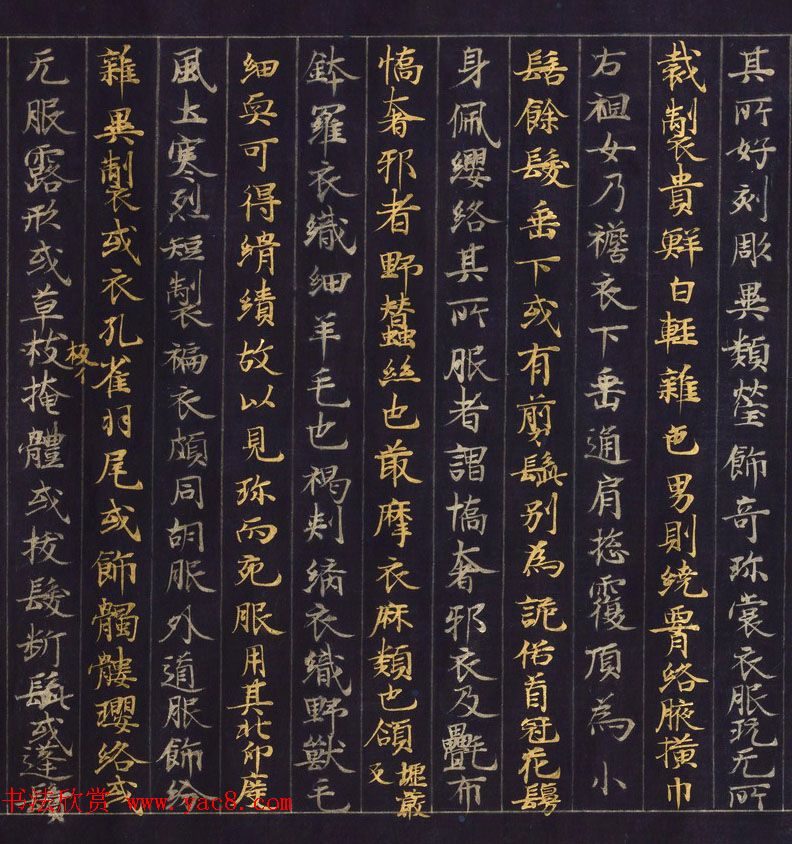 其所好刻彫異類瑩飾奇珎裳衣服玩无所
裁製貴鮮白輕雜色男則繞腰絡腋橫巾
右袒女乃襜衣下垂通肩揔覆頂為小
髻餘髮垂下或有剪髭別為詭俗首冠花鬘
身佩纓絡其所服者謂憍奢邪衣及㲲布
憍奢邪者野蠶絲也菆摩衣麻類也頷 搥嚴 又
鉢羅衣織細羊毛也褐剌縭衣織野獸毛
細耎可得緝績故以見珎而宛服用其北印度
風土寒烈短製褊衣頗同胡服外道服飾紛
雜異製或衣孔雀羽尾或飾髑髏瓔絡或
无服露形或草柭掩體或拔髮斷髭或蓬
书法欣赏 www.yac8.com